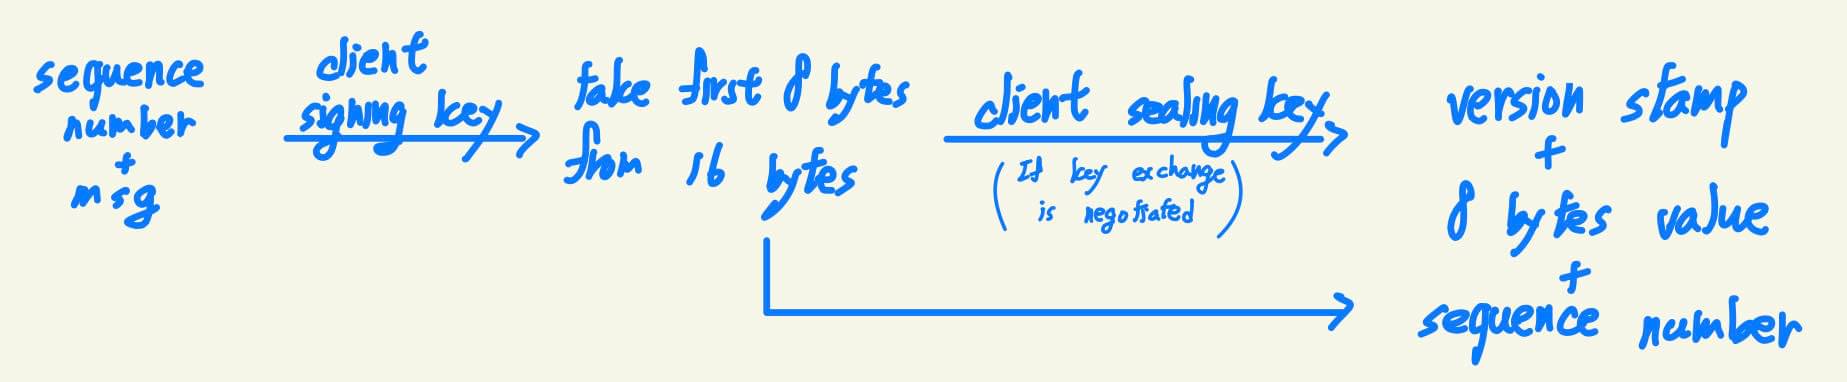 sequence
number
+
msg
client
signing key
take first 8 bytes
from 16 bytes
client sealing key
(If key exchange
is negotiated)
version stamp
+
8 bytes value
+
sequence number